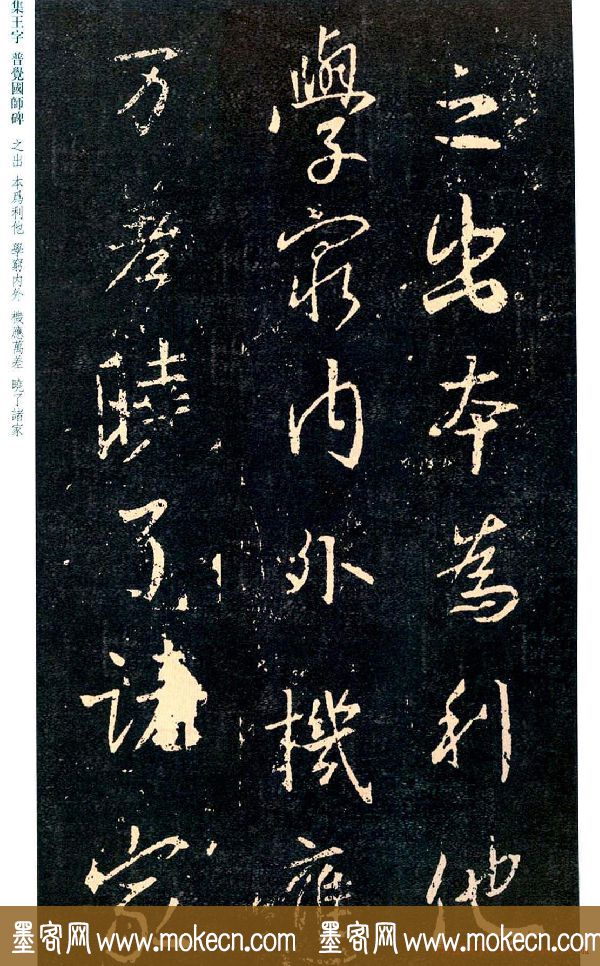 之出本為利他
學窮内外機應
万差曉了諸家
集王字 普覺國師碑 之出 本爲利他 學窮内外 機應萬差 曉了諸家
墨客网 www.mokecn.com 墨客网 www.mokecn.com